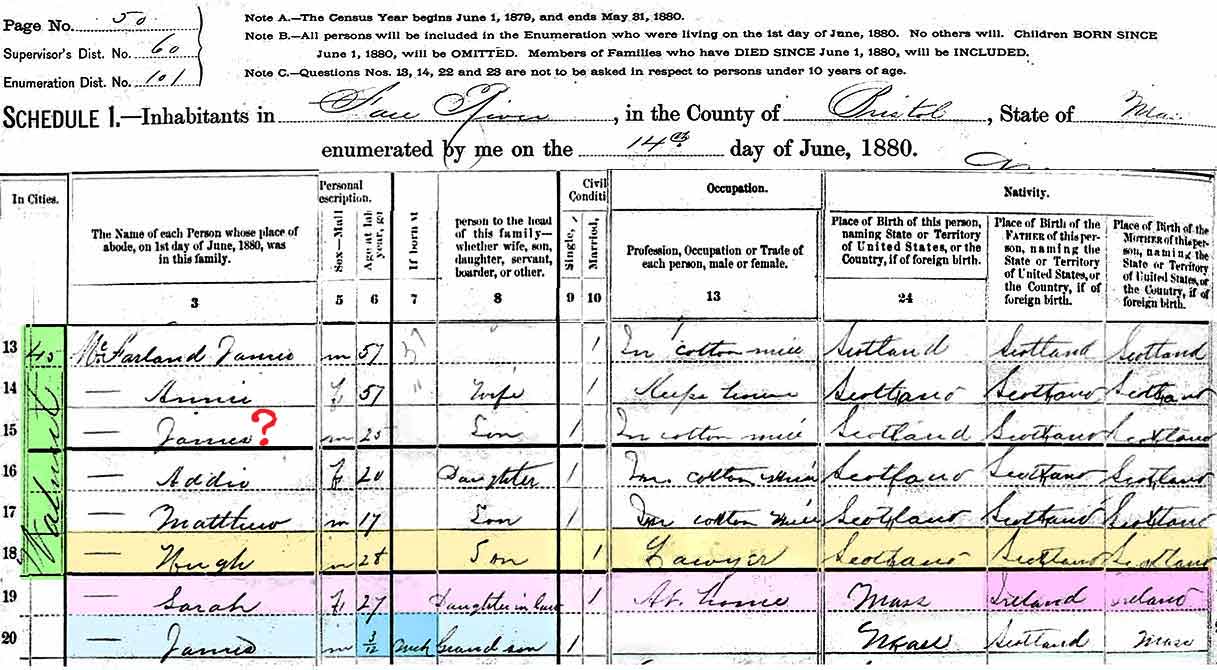 Page No. 50
Supervisor's Dist. No. 60
Enumeration Dist. No. 101
Note A.—The Census Year begins June 1, 1879, and ends May 31, 1880.
Note B.—All persons will be included in the Enumeration who were living on the 1st day of June, 1880. No others will. Children BORN SINCE
June 1, 1880, will be OMITTED. Members of Families who have DIED SINCE June 1, 1880, will be INCLUDED.
Note C.—Questions Nos. 13, 14, 22 and 23 are not to be asked in respect to persons under 10 years of age.
SCHEDULE 1.—Inhabitants in Fall River, in the County of Bristol, State of Mass
enumerated by me on the 14th day of June, 1880.
In Cities.
The Name of each Person whose place of
abode, on 1st day of June, 1880, was
in this family.
3
Personal
escription.
Sex—Mall
Age at lah
year, ge
5 6
If born at
7
person to the head
of this family—
whether wife, son,
daughter, servant,
boarder, or other.
8
Civil
Conditi
Single,
Married,
9 10
Occupation.
Profession, Occupation or Trade of
each person, male or female.
13
Nativity.
Place of Birth of this person,
naming State or Territory
of United States, or the
Country, if of foreign birth.
24
Place of Birth of the
FATHER of this per-
son, naming the
State or Territory
of United States, or
the Country, if of
foreign birth.
Place of Birth of the
MOTHER of this per-
son, naming the
State or Territory
of United States, or
the Country, if of
foreign birth.
Walnut
13 45 McFarland James m 57 1 In cotton mill Scotland Scotland Scotland
14 — Annie F 57 " Wife 1 Keeps house Scotland Scotland Scotland
15 — James ? m 25 Son 1 In cotton mill Scotland Scotland Scotland
16 — Addie F 20 Daughter 1 In cotton mill Scotland Scotland Scotland
17 — Matthew m 17 Son 1 In cotton mill Scotland Scotland Scotland
18 — Hugh m 28 Son 1 Lawyer Scotland Scotland Scotland
19 — Sarah F 27 Daughter in law 1 At home Mass Ireland Ireland
20 — James m 3/12 Mch Grand son 1 Mass Scotland Mass